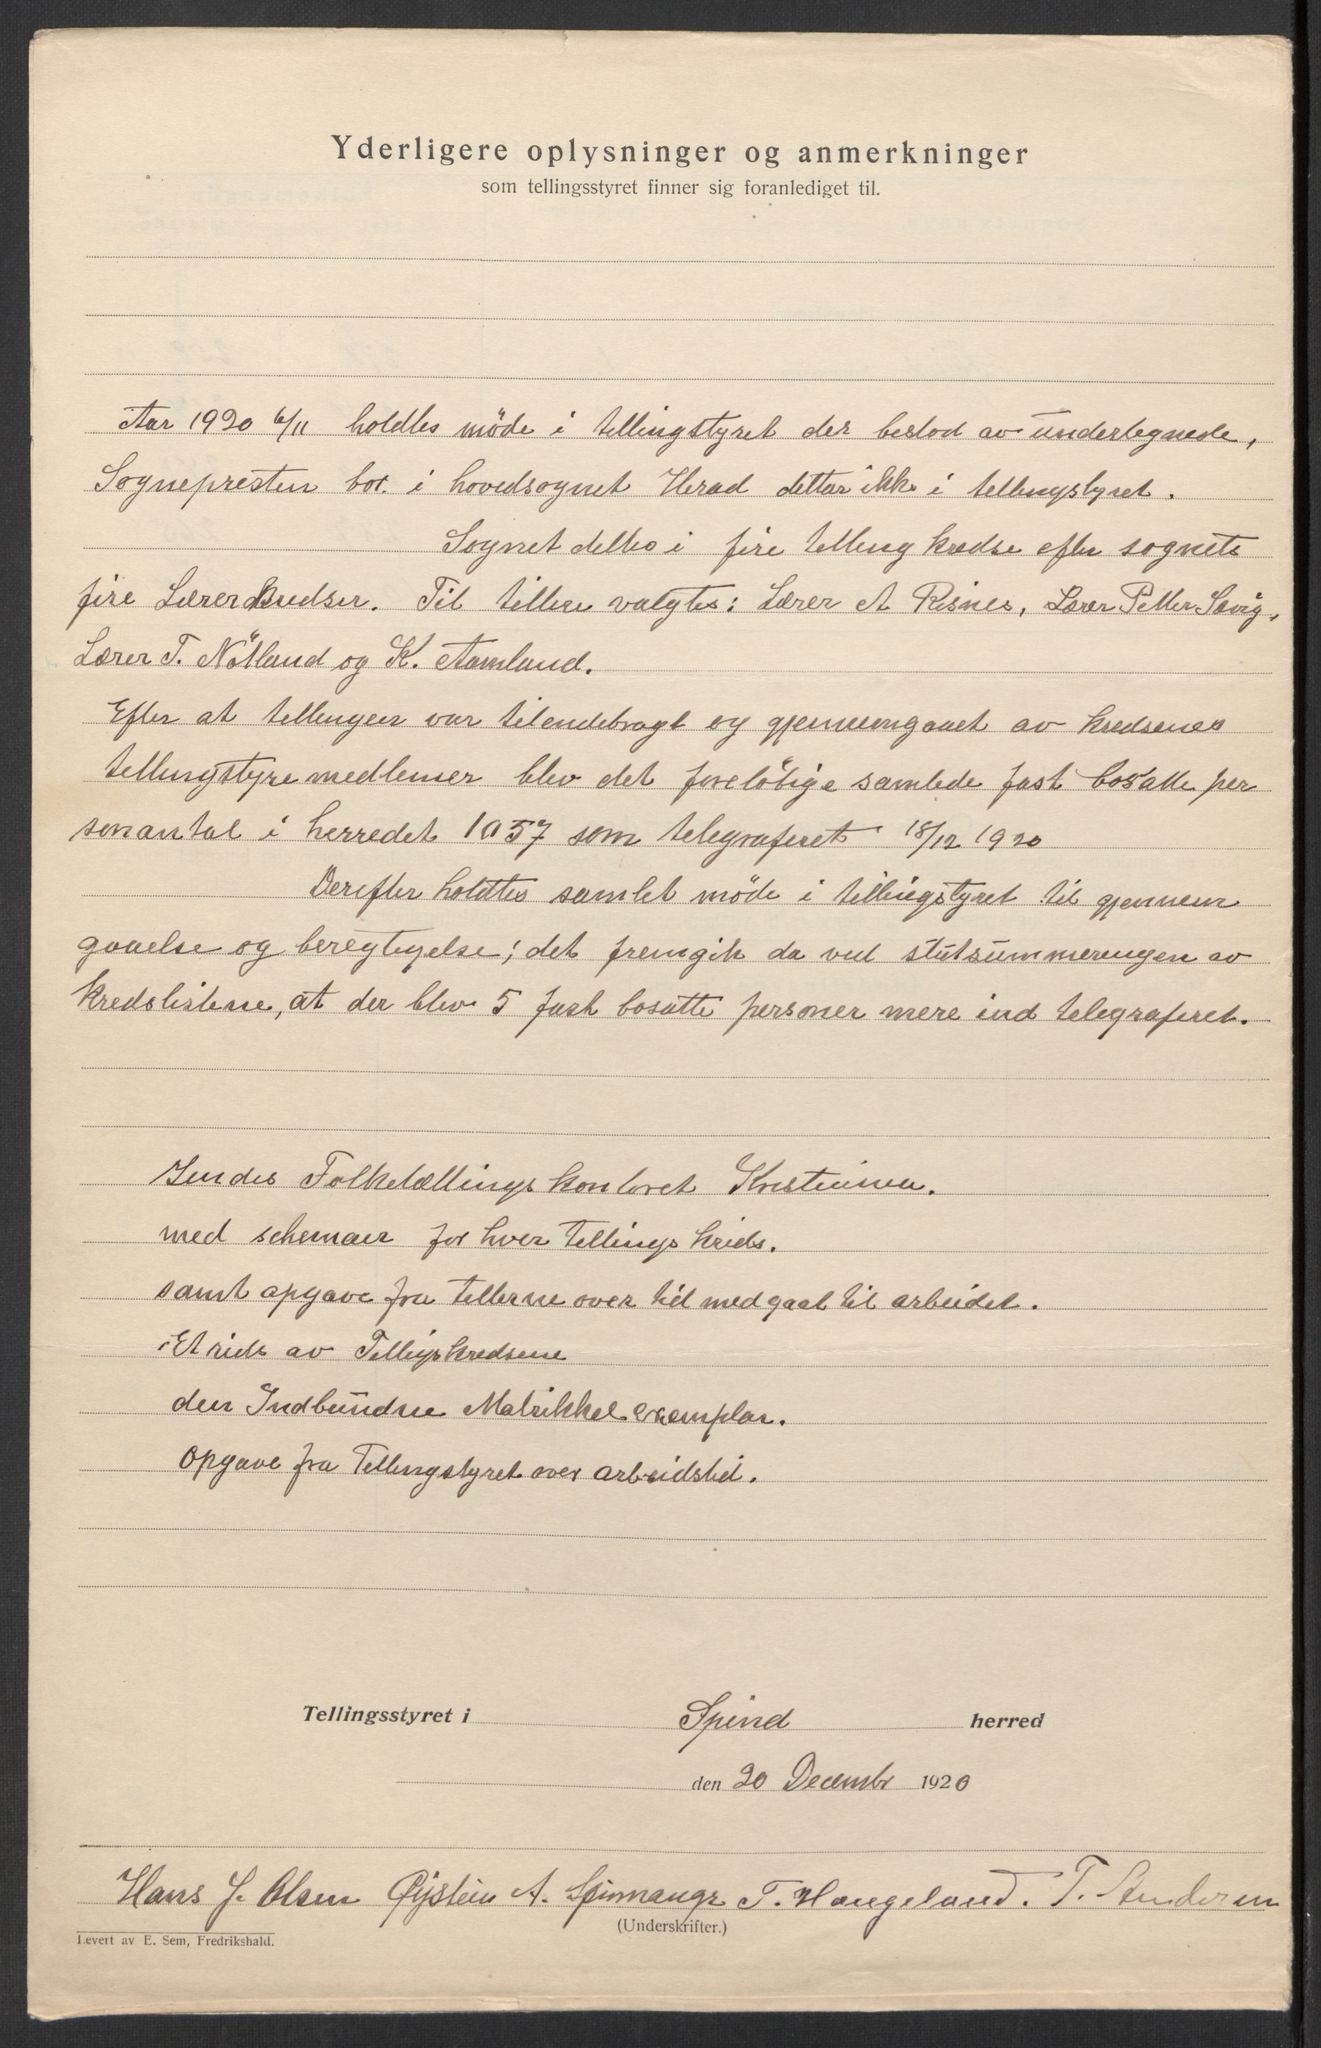 Yderligere oplysninger og anmerkninger
som tellingsstyret finner sig foranlediget til.
Aar 1920 6/11 holdtes möde i tellingstyret der bestod av undertegnede,
Sognepresten bor i hovedsognet Herad deltar ikke i tellingstyret.
Sognet deltes i fire telling kredse efter sognets
fire Lærerkredser. Til tellere valgtes: Lærer A Risnes, Lærer Petter Sævig,
Lærer T. Nötland og K. Aamland.
Efter at tellingen var tilendebragt og gjennemgaaet av kredsenes
tellingstyremedlemer blev det forelöbige samlede fast bosatte per
sonantal i herredet 1057 som telegraferet 18/12 1920
Derefter holdtes samlet möde i tellingstyret til gjennem
gaaelse og beregtigelse; det fremgik da ved slutsummeringen av
kredslistene, at der blev 5 fast bosatte personer mere ind telegraferet.
Sendes Folketællingskontoret Kristiania.
med schemaer for hver tellings kreds.
samt opgave fra tellerne over tid medgaat til arbeidet.
Et rids av Tellingskredsene
den Indbundne Matrikkel exemplar.
Opgave fra Tellingstyret over arbeidstid.
Tellingsstyret i Spind herred
den 20 Decembr 1920
Hans J. Olsen Øystein A. Spinnangr T. Haugeland. T. Andersen
(Underskrifter.)
Levert av E. Sem, Fredrikshald.